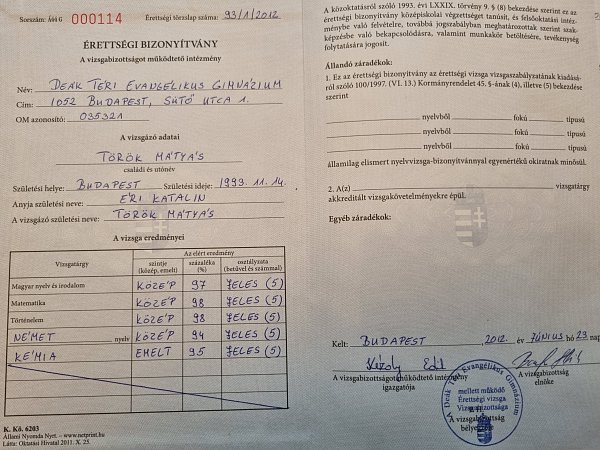 Sorszám: Á44 G 000114
Érettségi törzslap száma: 93/1/2012
ÉRETTSÉGI BIZONYÍTVÁNY
A vizsgabizottságot működtető intézmény
Név: DEÁK TÉRI EVANGÉLIKUS GIMNÁZIUM
Cím: 1052 BUDAPEST, SÜTŐ UTCA 1.
OM azonosító: 035321
A vizsgázó adatai
TÖRÖK MÁTYÁS
családi és utónév
Születési helye: BUDAPEST Születési ideje: 1993. 11. 14.
Anyja születési neve: ÉRI KATALIN
A vizsgázó születési neve: TÖRÖK MÁTYÁS
A vizsga eredményei
Vizsgatárgy
Az elért eredmény
szintje (közép, emelt)
százaléka (%)
osztályzata (betűvel és számmal)
Magyar nyelv és irodalom KÖZÉP 97 JELES (5)
Matematika KÖZÉP 98 JELES (5)
Történelem KÖZÉP 98 JELES (5)
NÉMET nyelv KÖZÉP 94 JELES (5)
KÉMIA EMELT 95 JELES (5)
K. Kő. 6203
Állami Nyomda Nyrt. – www.netprint.hu
Látta: Oktatási Hivatal 2011. X. 25.
A közoktatásról szóló 1993. évi LXXIX. törvény 9. § (8) bekezdése szerint ez az
érettségi bizonyítvány középiskolai végzettséget tanúsít, és felsőoktatási intéz-
ménybe való felvételre, továbbá jogszabályban meghatározottak szerint szak-
képzésbe való bekapcsolódásra, valamint munkakör betöltésére, tevékenység
folytatására jogosít.
Állandó záradékok:
1. Ez az érettségi bizonyítvány az érettségi vizsga vizsgaszabályzatának kiadásá-
ról szóló 100/1997. (VI. 13.) Kormányrendelet 45. §-ának (4), illetve (5) bekezdése
szerint
nyelvből fokú típusú
nyelvből fokú típusú
nyelvből fokú típusú
államilag elismert nyelvvizsga-bizonyítvánnyal egyenértékű okiratnak minősül.
2. A(z) vizsgatárgy
akkreditált vizsgakövetelményekre épül.
Egyéb záradékok:
Kelt: BUDAPEST 2012. év JÚNIUS hó 29 nap
A vizsgabizottságot működtető intézmény
igazgatója
A vizsgabizottság
elnöke
Deák Téri Evangélikus Gimnázium
mellett működő
Érettségi vizsga
Vizsgabizottsága
A vizsgabizottság
bélyegzője